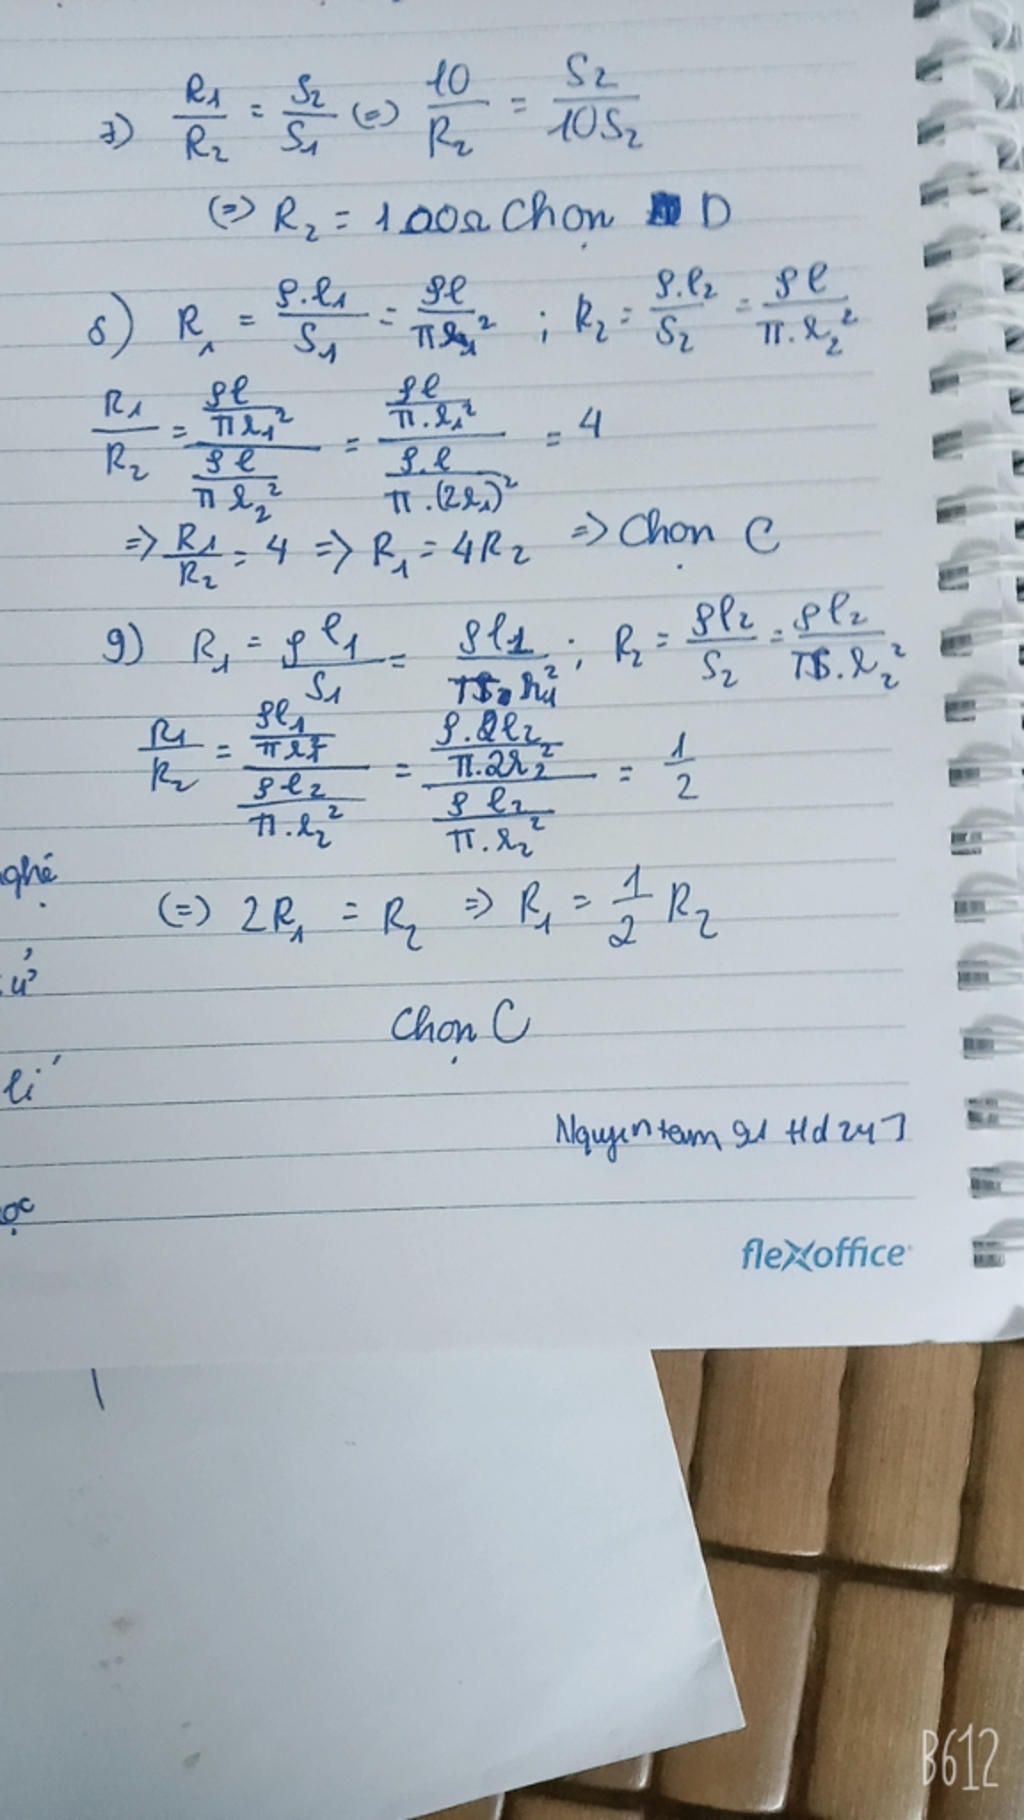 7) R₁/R₂ = S₂/S₁ (=) 10/R₂ = S₂/10S₂
(=) R₂ = 100Ω Chọn D
8) R₁ = ρ.l₁/S₁ = ρl/πr₁² ; R₂ = ρ.l₂/S₂ = ρl/π.r₂²
R₁/R₂ = (ρl/πr₁²)/(ρl/πr₂²) = (ρl/π.r₁²)/(ρ.l/π.(2r₁)²) = 4
=> R₁/R₂ = 4 => R₁ = 4R₂ => Chọn C
9) R₁ = ρl₁/S₁ = ρl1/π.r₁² ; R₂ = ρl₂/S₂ = ρl₂/π.r₂²
R₁/R₂ = (ρl₁/πr₁²)/(ρl₂/π.r₂²) = (ρ.2l₂/π.2r₂²)/(ρl₂/π.r₂²) = 1/2
(=) 2R₁ = R₂ => R₁ = 1/2 R₂
Chọn C
nghệ
lí
ọc
flexoffice
B612